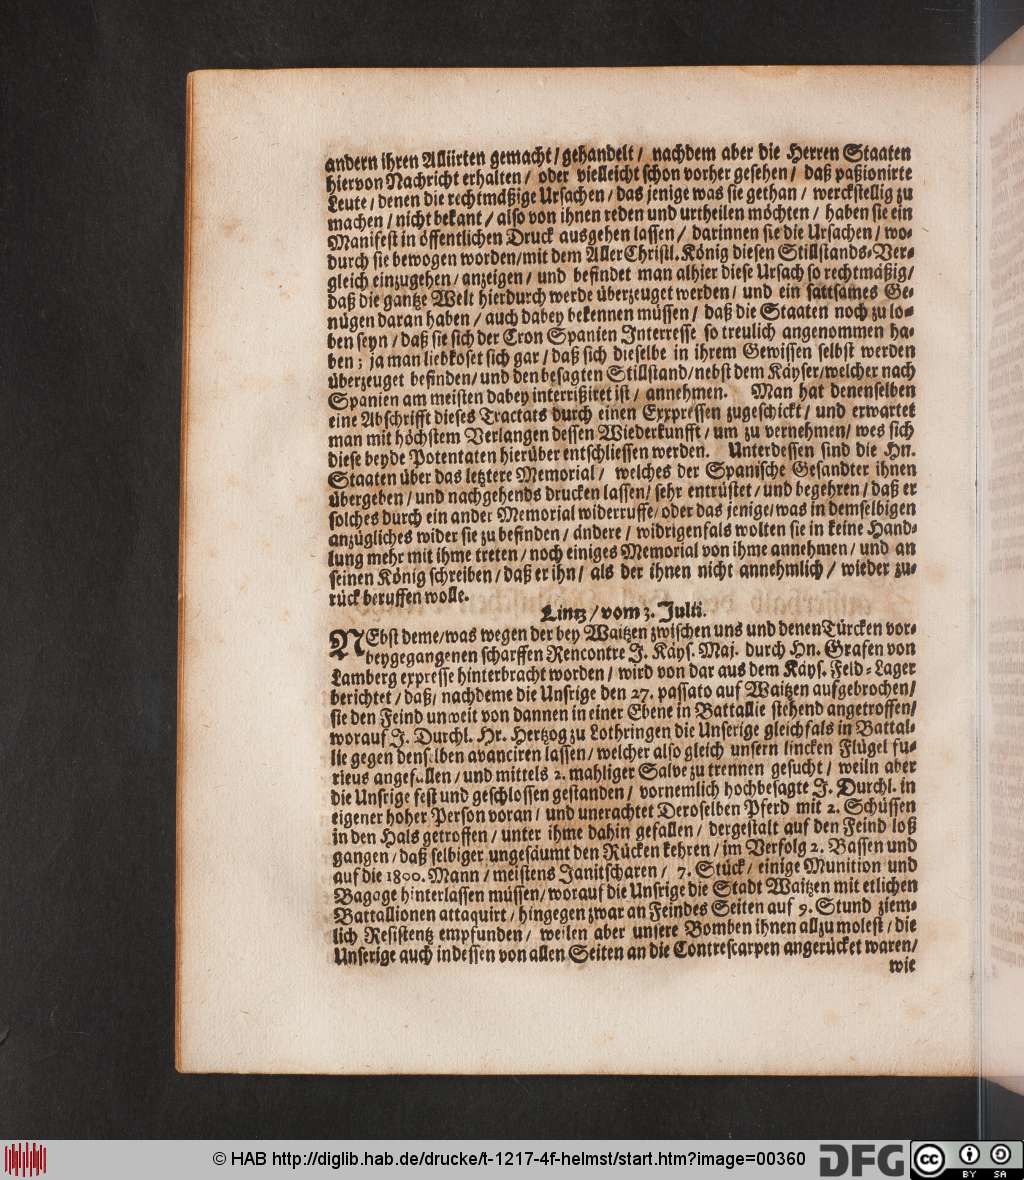 andern ihren Alliirten gemacht / gehandelt / nachdem aber die Herren Staaten
hiervon Nachricht erhalten / oder vielleicht schon vorher gesehen / daß paßionirte
Leute / denen die rechtmäßige Ursachen / das jenige was sie gethan / werckstellig zu
machen / nicht bekant / also von ihnen reden und urtheilen möchten / haben sie ein
Manifest in öffentlichen Druck ausgehen lassen / darinnen sie die Ursachen / wo-
durch sie bewogen worden / mit dem Aller Christl. König diesen Stillstands-Ver-
gleich einzugehen / anzeigen / und befindet man alhier diese Ursach so rechtmäßig /
daß die gantze Welt hierdurch werde überzeuget werden / und ein sattsames Ge-
nügen daran haben / auch dabey bekennen müssen / daß die Staaten noch zu lo-
ben seyn / daß sie sich der Cron Spanien Interresse so treulich angenommen ha-
ben ; ja man liebkoset sich gar / daß sich dieselbe in ihrem Gewissen selbst werden
überzeuget befinden / und den besagten Stillstand / nebst dem Käyser / welcher nach
Spanien am meisten dabey interrißiret ist / annehmen. Man hat denenselben
eine Abschrifft dieses Tractats durch einen Exxpressen zugeschickt / und erwartet
man mit höchstem Verlangen dessen Wiederkunfft / um zu vernehmen / wes sich
diese beyde Potentaten hierüber entschliessen werden. Unterdessen sind die Hn.
Staaten über das letztere Memorial / welches der Spanische Gesandter ihnen
übergeben / und nachgehends drucken lassen / sehr entrüstet / und begehren / daß er
solches durch ein ander Memorial widerruffe / oder das jenige / was in demselbigen
anzügliches wider sie zu befinden / ändere / widrigenfals wolten sie in keine Hand-
lung mehr mit ihme treten / noch einiges Memorial von ihme annehmen / und an
seinen König schreiben / daß er ihn / als der ihnen nicht annehmlich / wieder zu-
rück beruffen wolle.
Lintz / vom 3. Julii.
NEbst deme / was wegen der bey Waitzen zwischen uns und denen Türcken vor-
beygegangenen scharffen Rencontre J. Käys. Maj. durch Hn. Grafen von
Lamberg expresse hinterbracht worden / wird von dar aus dem Käys. Feld-Lager
berichtet / daß / nachdeme die Unsrige den 27. passato auf Waitzen aufgebrochen /
sie den Feind unweit von dannen in einer Ebene in Battallie stehend angetroffen /
worauf J. Durchl. Hr. Hertzog zu Lothringen die Unserige gleichfals in Battal-
lie gegen denselben avanciren lassen / welcher also gleich unsern lincken Flügel fu-
rieus angefallen / und mittels 2. mahliger Salve zu trennen gesucht / weiln aber
die Unsrige fest und geschlossen gestanden / vornemlich hochbesagte J. Durchl. in
eigener hoher Person voran / und unerachtet Deroselben Pferd mit 2. Schüssen
in den Hals getroffen / unter ihme dahin gefallen / dergestalt auf den Feind loß
gangen / daß selbiger ungesäumt den Rücken kehren / im Verfolg 2. Bassen und
auf die 1800. Mann / meistens Janitscharen / 7. Stück / einige Munition und
Bagage hinterlassen müssen / worauf die Unsrige die Stadt Waitzen mit etlichen
Battallionen attaquirt / hingegen zwar an Feindes Seiten auf 9. Stund ziem-
lich Resistentz empfunden / weilen aber unsere Bomben ihnen allzu molest / die
Unserige auch indessen von allen Seiten an die Contrescarpen angerücket waren /
wie
© HAB http://diglib.hab.de/drucke/t-1217-4f-helmst/start.htm?image=00360
DFG
cc BY SA